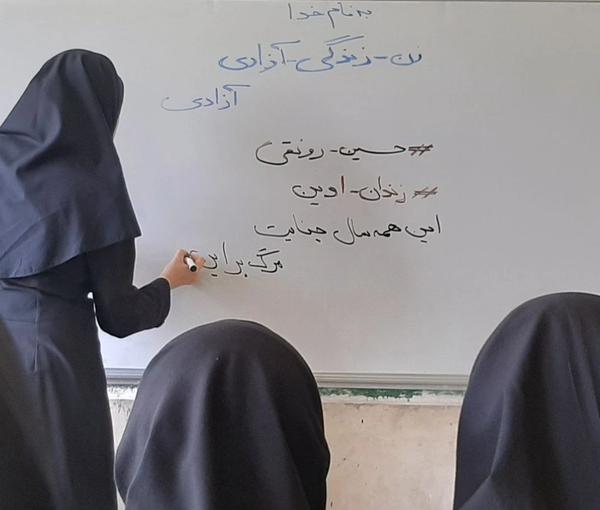 به نام خدا
زن-زندگی-آزادی
آزادی
#حسین-رونقی
#زندان-اوین
این همه سال جنایت
مرگ بر این